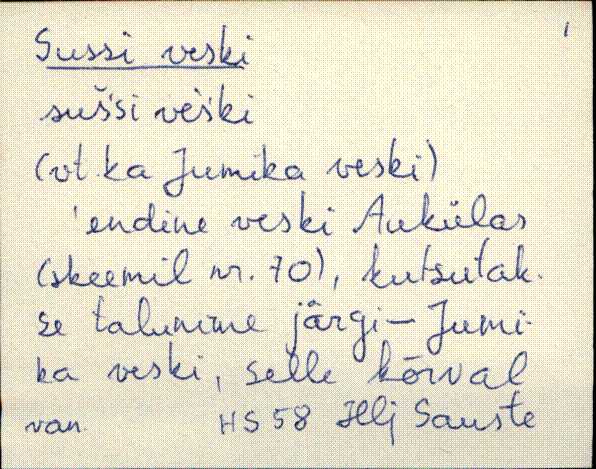 Sussi veski
sušsi veśki
(vt. ka Jumika veski)
'endine veski Aukülas
(skeemil nr. 70), kutsutak-
se talunime järgi – Jumi-
ka veski, selle kõrval
van. HS 58 Hlj Sauste